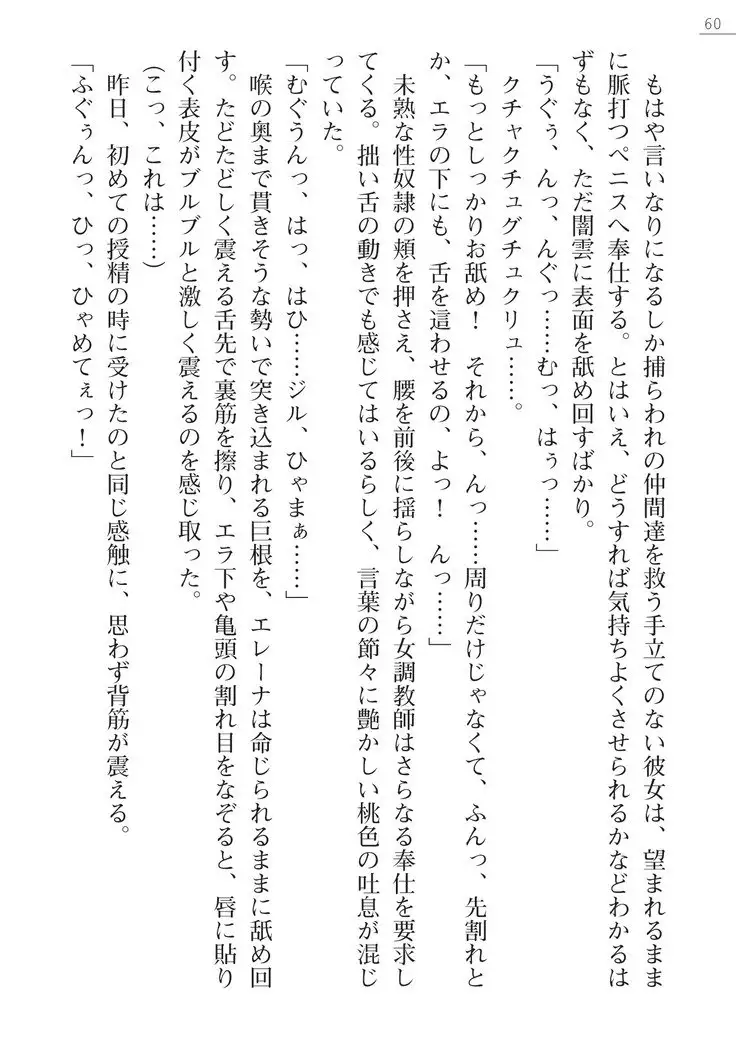 60
もはや言いなりになるしか捕らわれの仲間達を救う手立てのない彼女は、望まれるまま
に脈打つペニスへ奉仕する。とはいえ、どうすれば気持ちよくさせられるかなどわかるは
ずもなく、ただ闇雲に表面を舐め回すばかり。
「うぐぅ、んっ、んぐっ……むっ、はぅっ……」
クチャクチュグチュクリュ……。
「もっとしっかりお舐め！　それから、んっ……周りだけじゃなくて、ふんっ、先割れと
か、エラの下にも、舌を這わせるの、よっ！　んっ……」
未熟な性奴隷の頬を押さえ、腰を前後に揺らしながら女調教師はさらなる奉仕を要求し
てくる。拙い舌の動きでも感じてはいるらしく、言葉の節々に艶かしい桃色の吐息が混じ
っていた。
「むぐうんっ、はっ、はひ……ジル、ひゃまぁ……」
喉の奥まで貫きそうな勢いで突き込まれる巨根を、エレーナは命じられるままに舐め回
す。たどたどしく震える舌先で裏筋を擦り、エラ下や亀頭の割れ目をなぞると、唇に貼り
付く表皮がブルブルと激しく震えるのを感じ取った。
(こっ、これは……)
昨日、初めての授精の時に受けたのと同じ感触に、思わず背筋が震える。
「ふぐぅんっ、ひっ、ひゃめてぇっ！」